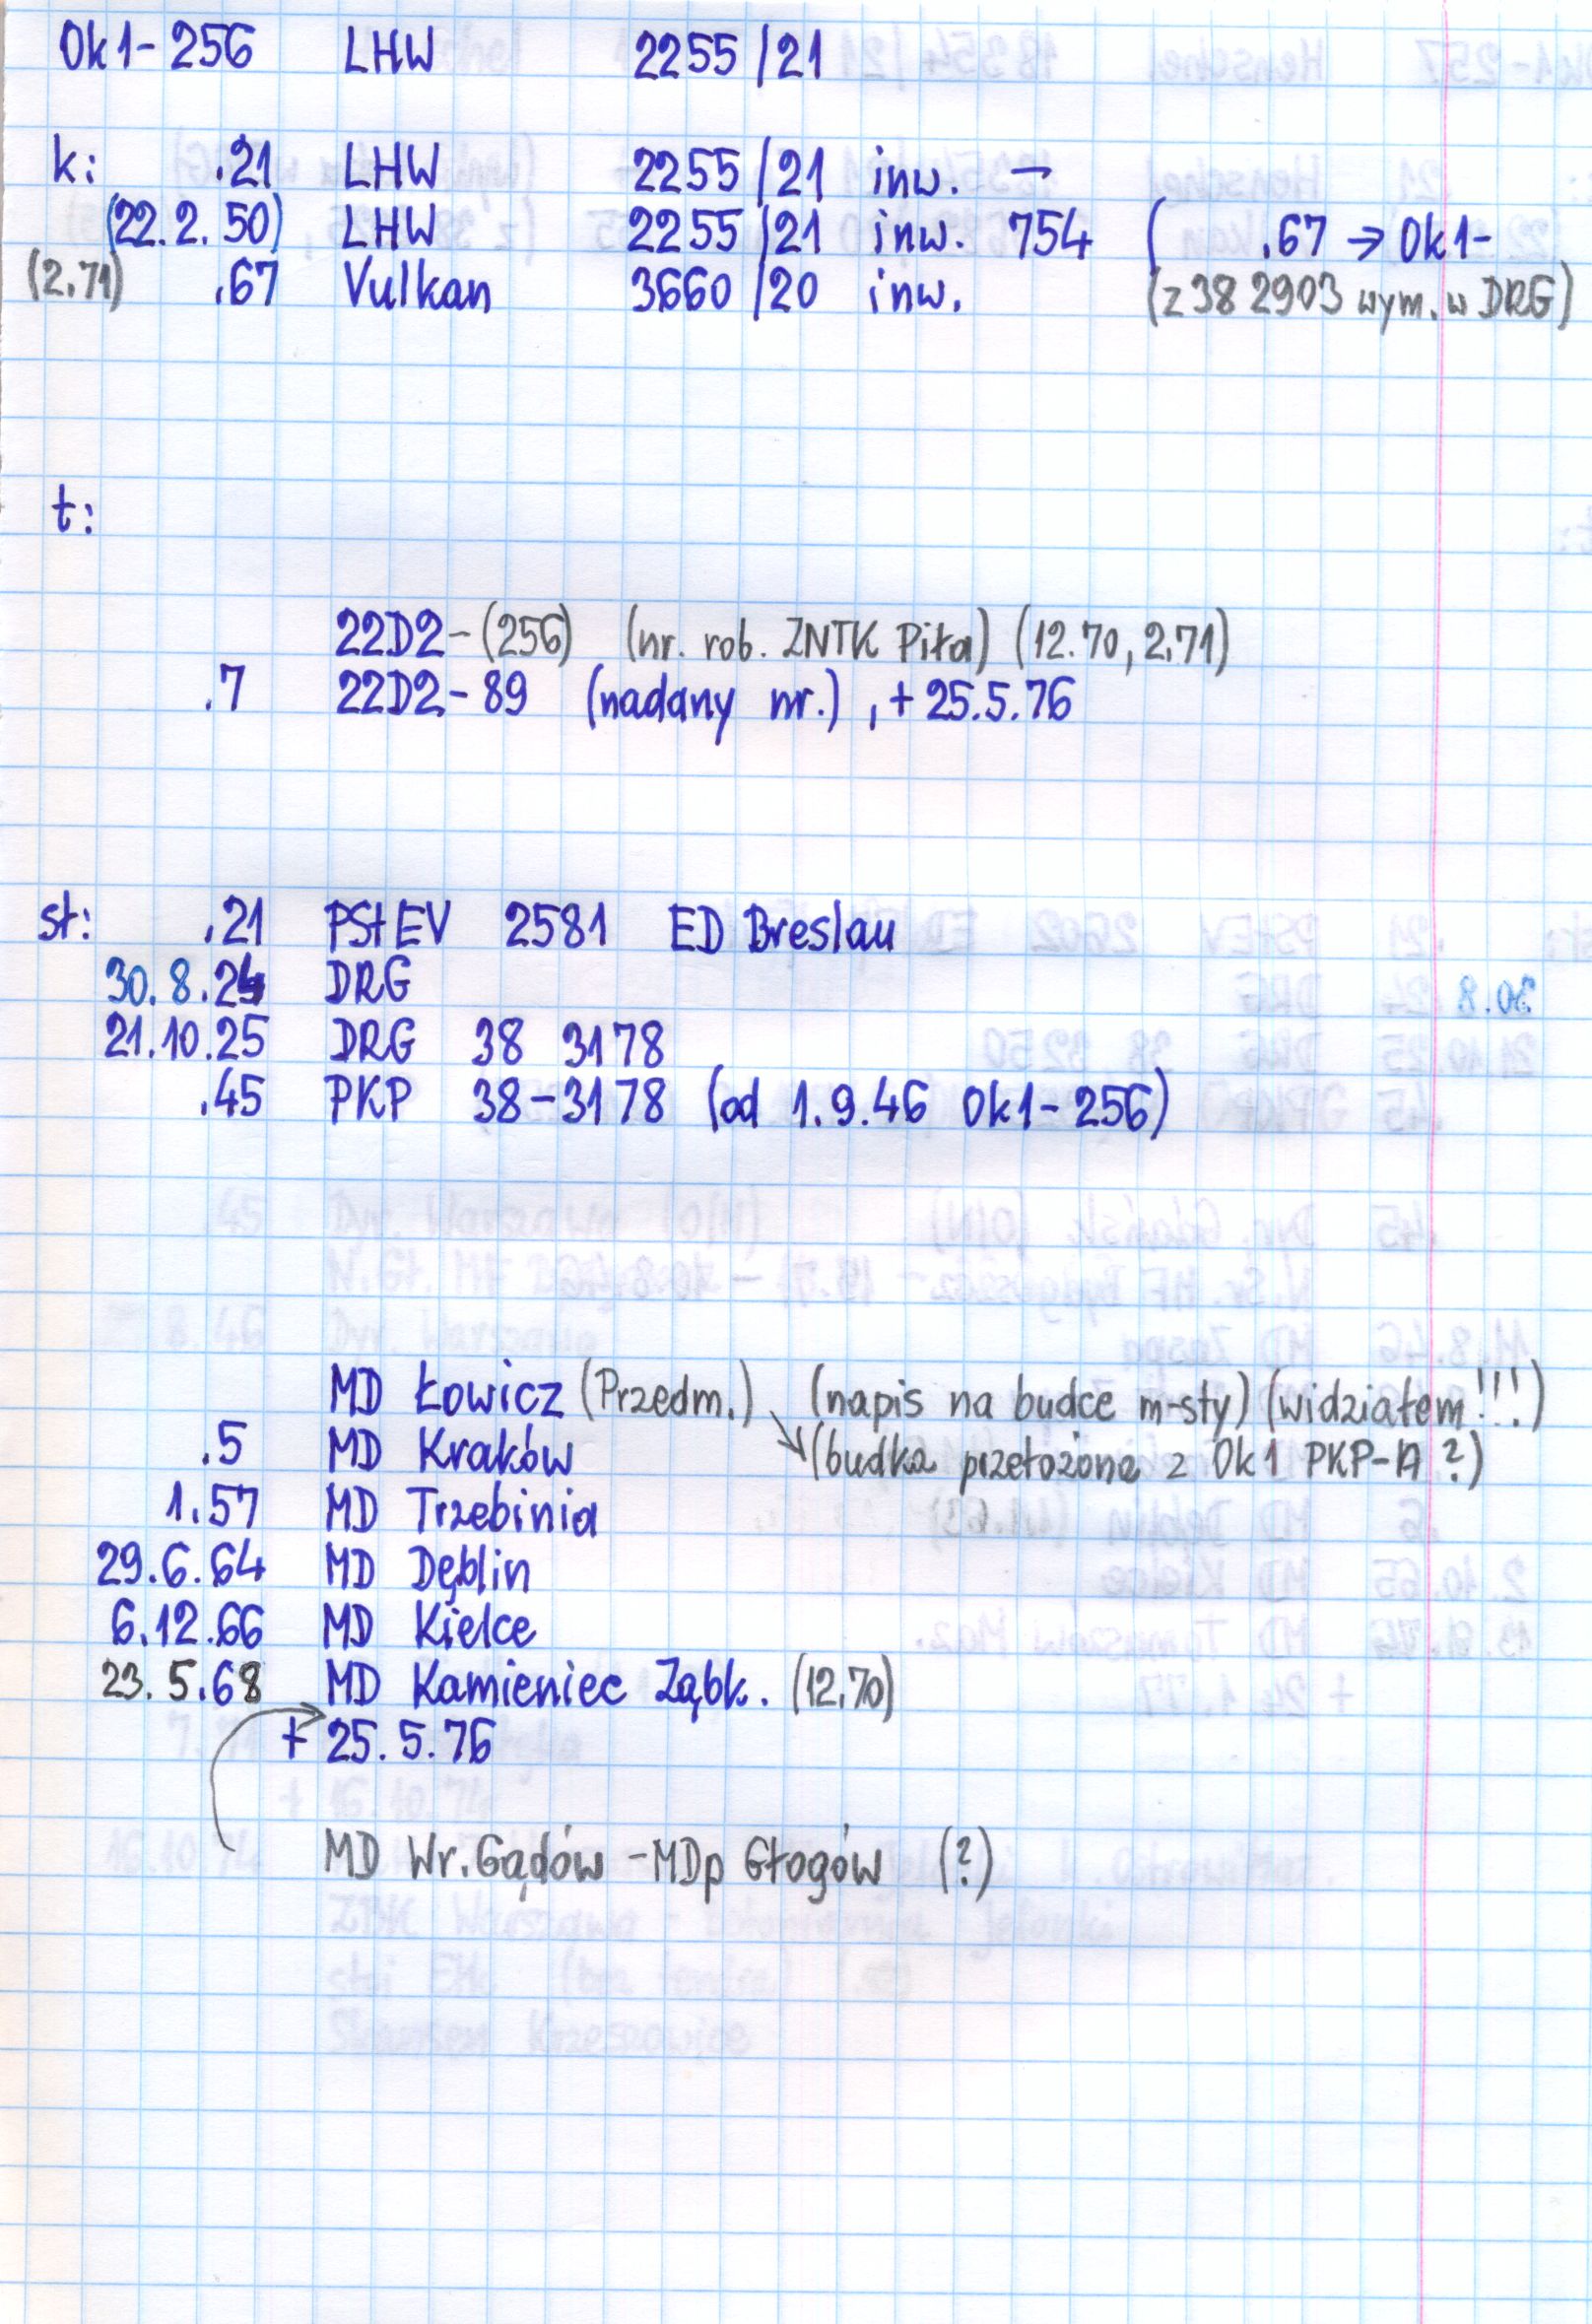 Ok1-256 LHW 2255/21
k: .21 LHW 2255/21 inw. –
(22.2.50) LHW 2255/21 inw. 754 ( .67 → Ok1-
(2.71) .67 Vulkan 3660/20 inw. (z 38 2903 wym. w DRG)
t:
22D2-(256) (nr. rob. ZNTK Piła) (12.70, 2.71)
.7 22D2-89 (nadany nr.), + 25.5.76
st: .21 PStEV 2581 ED Breslau
30.8.24 DRG
21.10.25 DRG 38 3178
.45 PKP 38-3178 (od 1.9.46 Ok1-256)
MD Łowicz (Przedm.) (napis na budce m-sty) (widziałem!!!)
.5 MD Kraków (budka przełożona z Ok1 PKP-A?)
1.57 MD Trzebinia
29.6.64 MD Dęblin
6.12.66 MD Kielce
23.5.68 MD Kamieniec Ząbk. (12.70)
+ 25.5.76
MD Wr. Gądów - MDp Głogów (?)